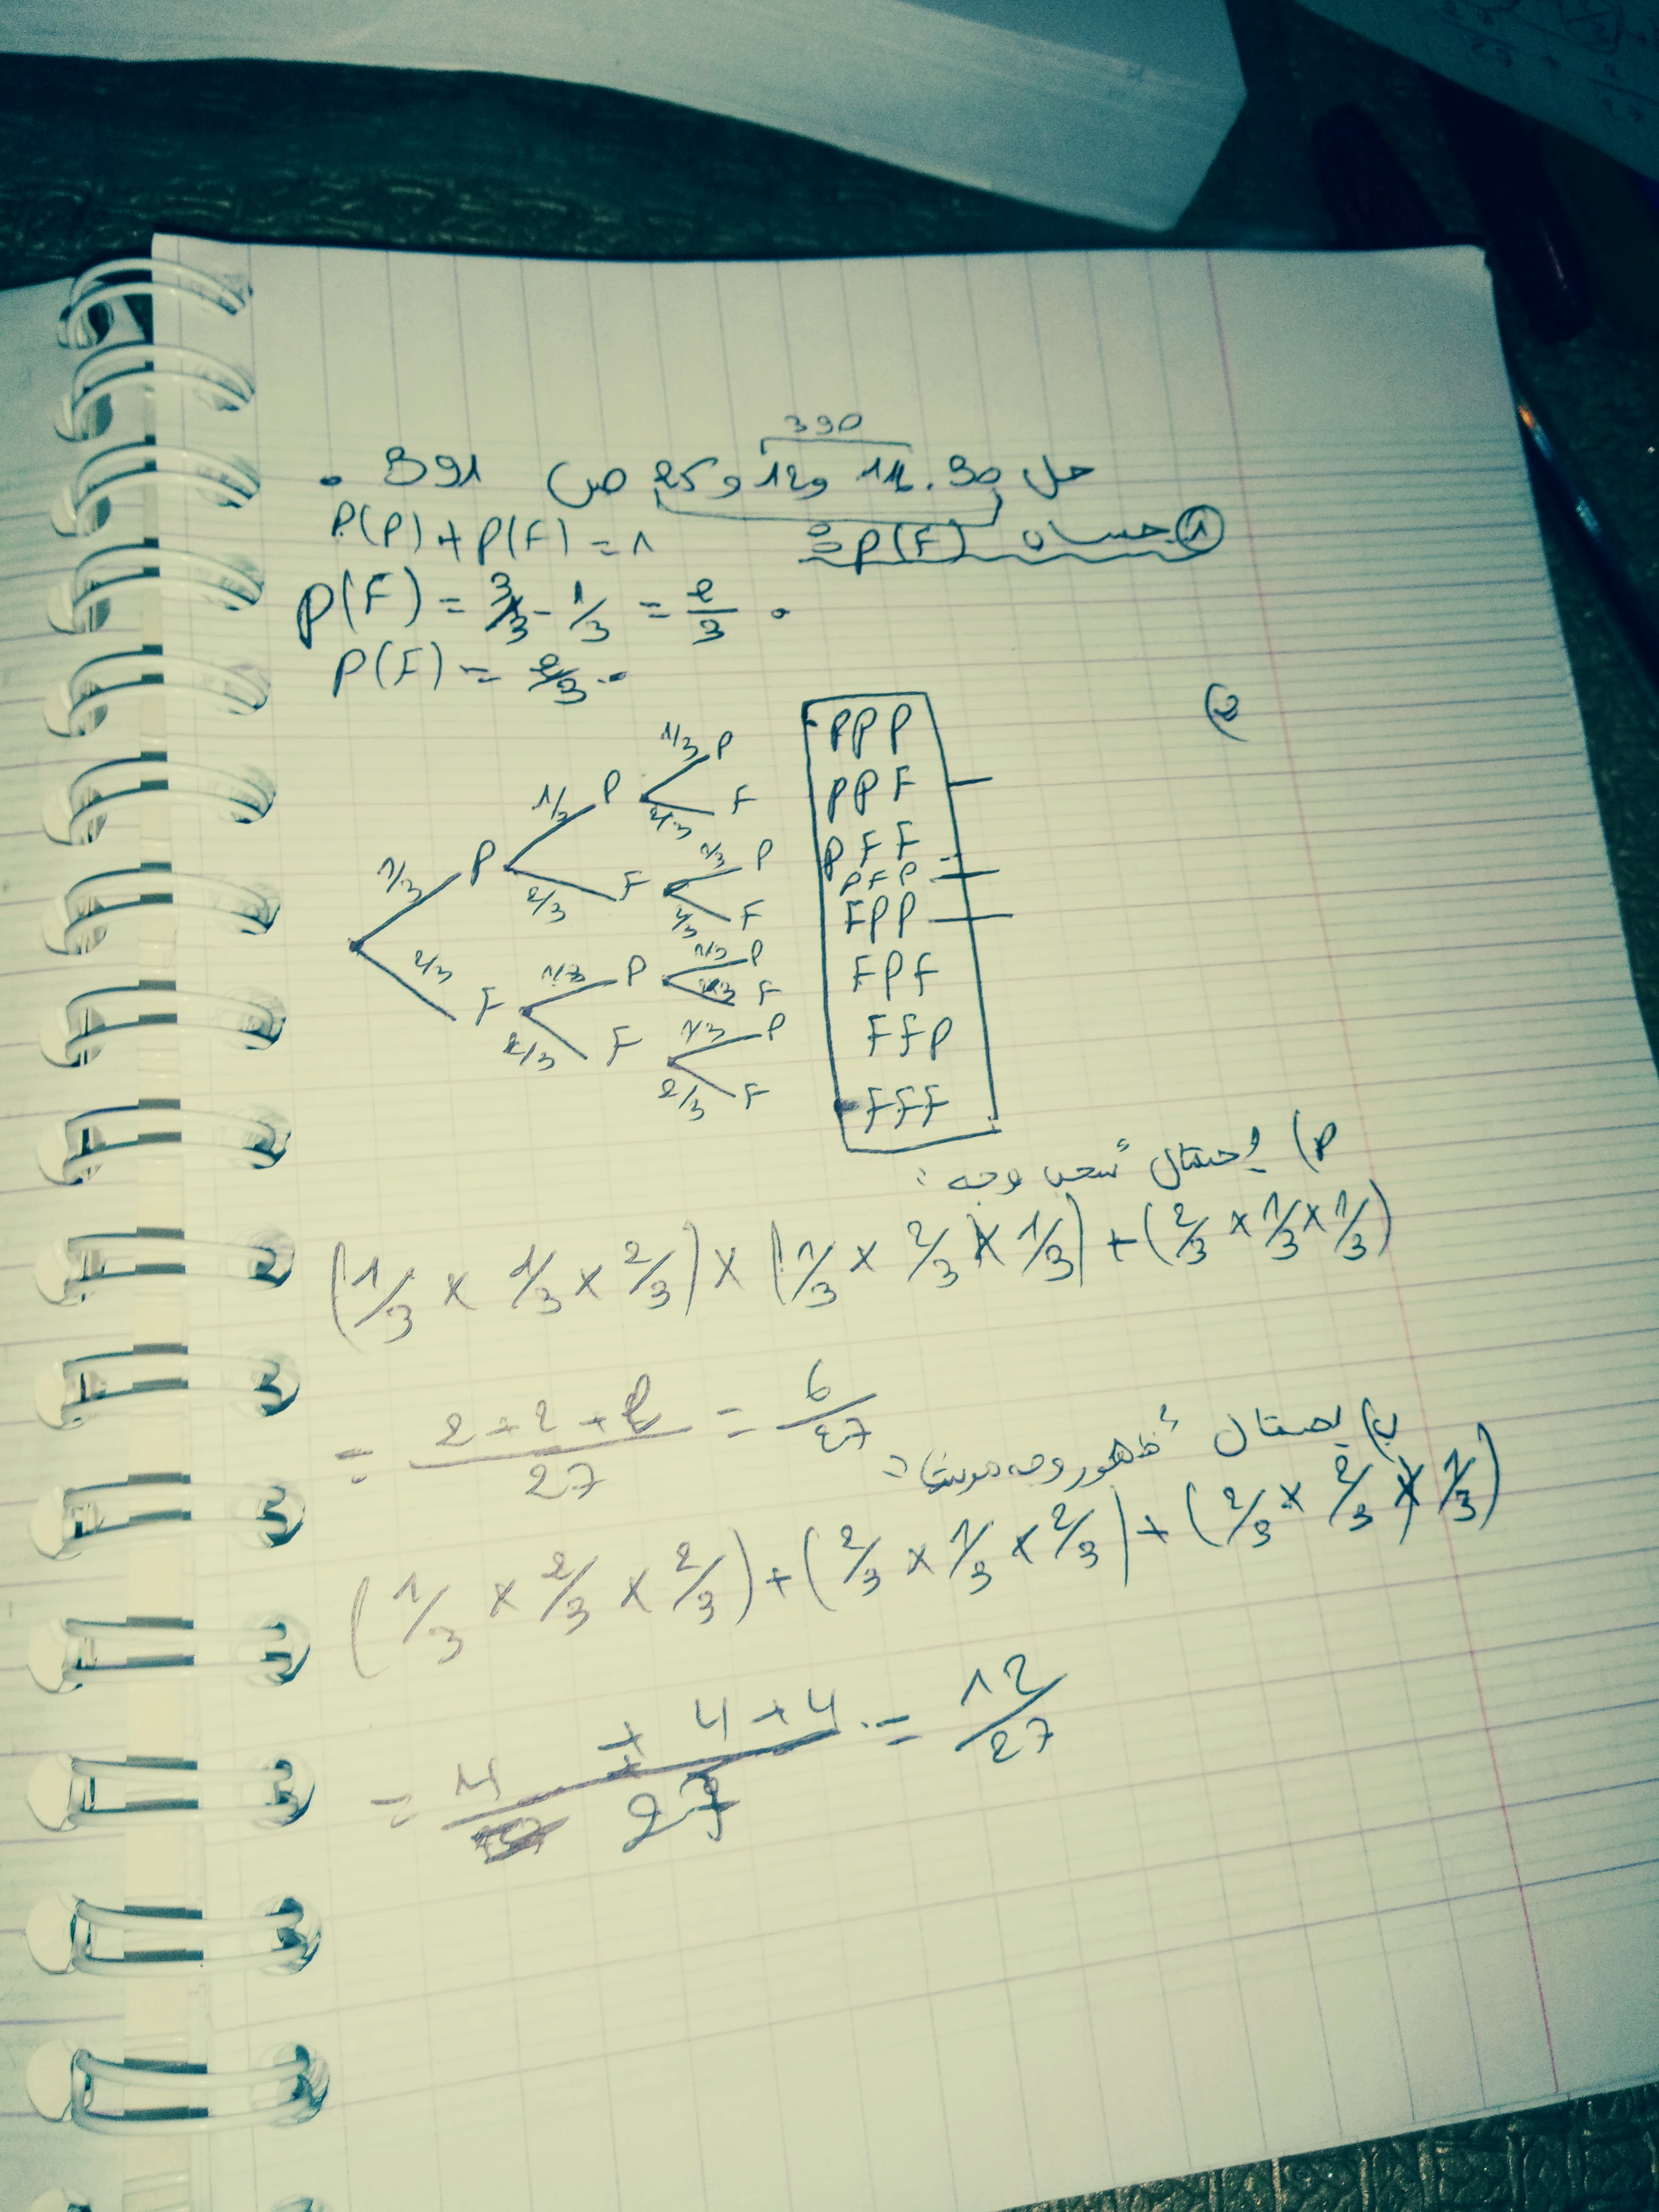 390
حل 30. 11 و 12 و 25 ص 391 .
① حساب P(F) :
P(P) + P(F) = 1
P(F) = 3/3 - 1/3 = 2/3 .
P(F) = 2/3 .
2)
1/3 P 1/3 P 1/3 P
2/3 F
2/3 F 1/3 P
2/3 F
2/3 F 1/3 P 1/3 P
2/3 F
2/3 F 1/3 P
2/3 F
PPP
PPF
PFF
PFP
FPP
FPF
FFP
FFF
احتمال سحب وجه :
(1/3 × 1/3 × 2/3) × (1/3 × 2/3 × 1/3) + (2/3 × 1/3 × 1/3)
= 2+2+2/27 = 6/27
ب) احتمال ظهور وجه مرتان :
(1/3 × 2/3 × 2/3) + (2/3 × 1/3 × 2/3) + (2/3 × 2/3 × 1/3)
= 4 + 4 + 4/27 = 12/27